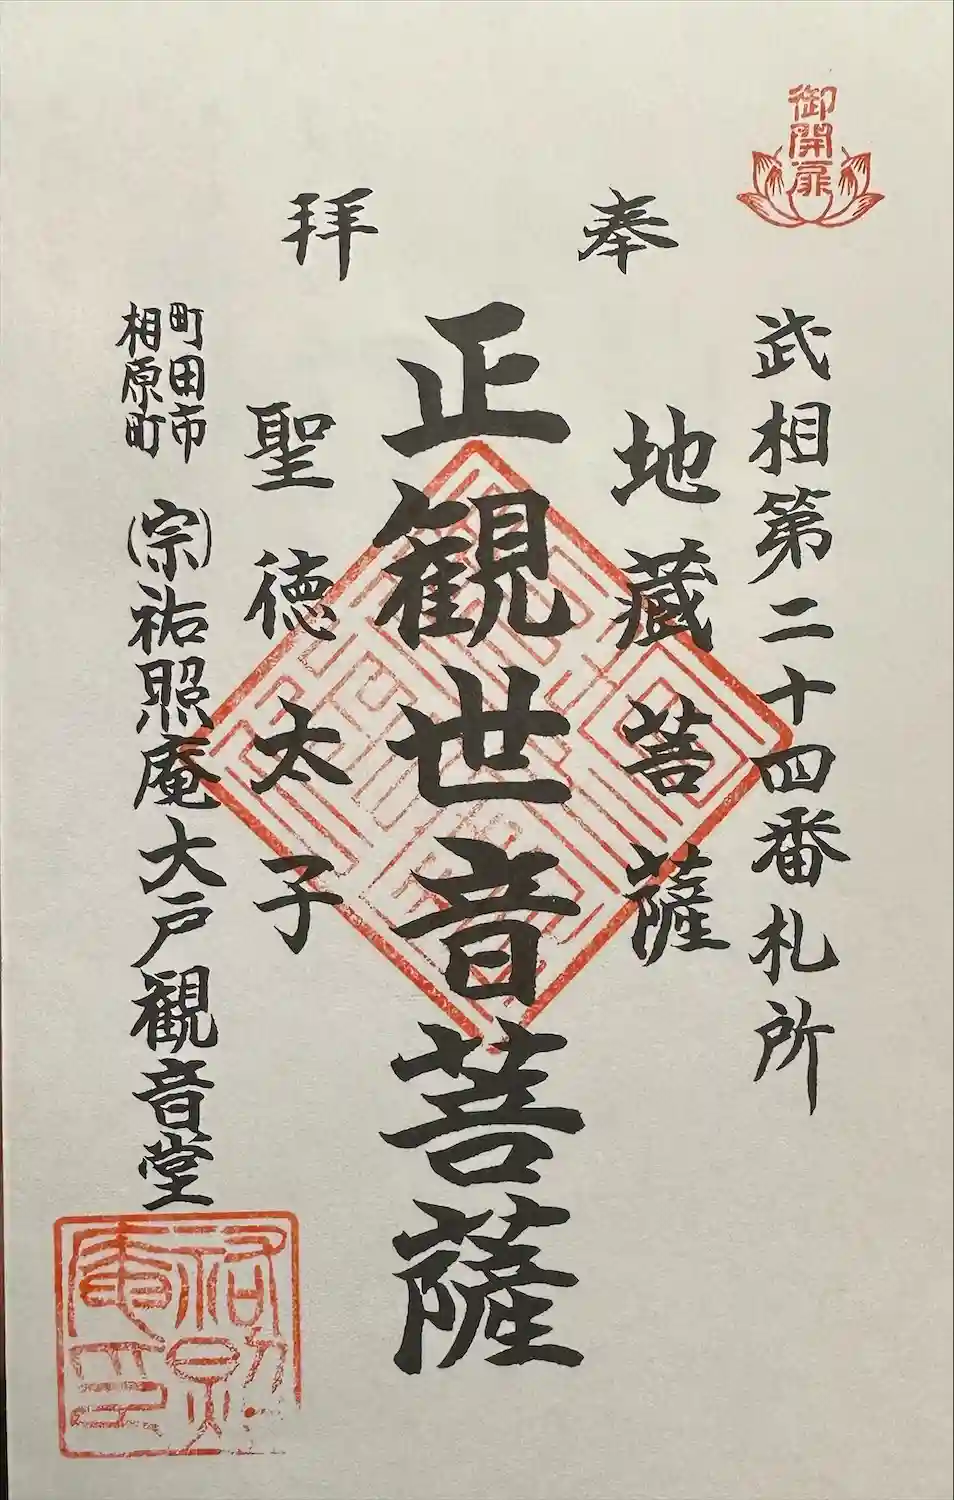 御開扉
奉拝
武相第二十四番札所
地蔵菩薩
正観世音菩薩
聖徳太子
町田市
相原町
(宗)祐照庵大戸観音堂